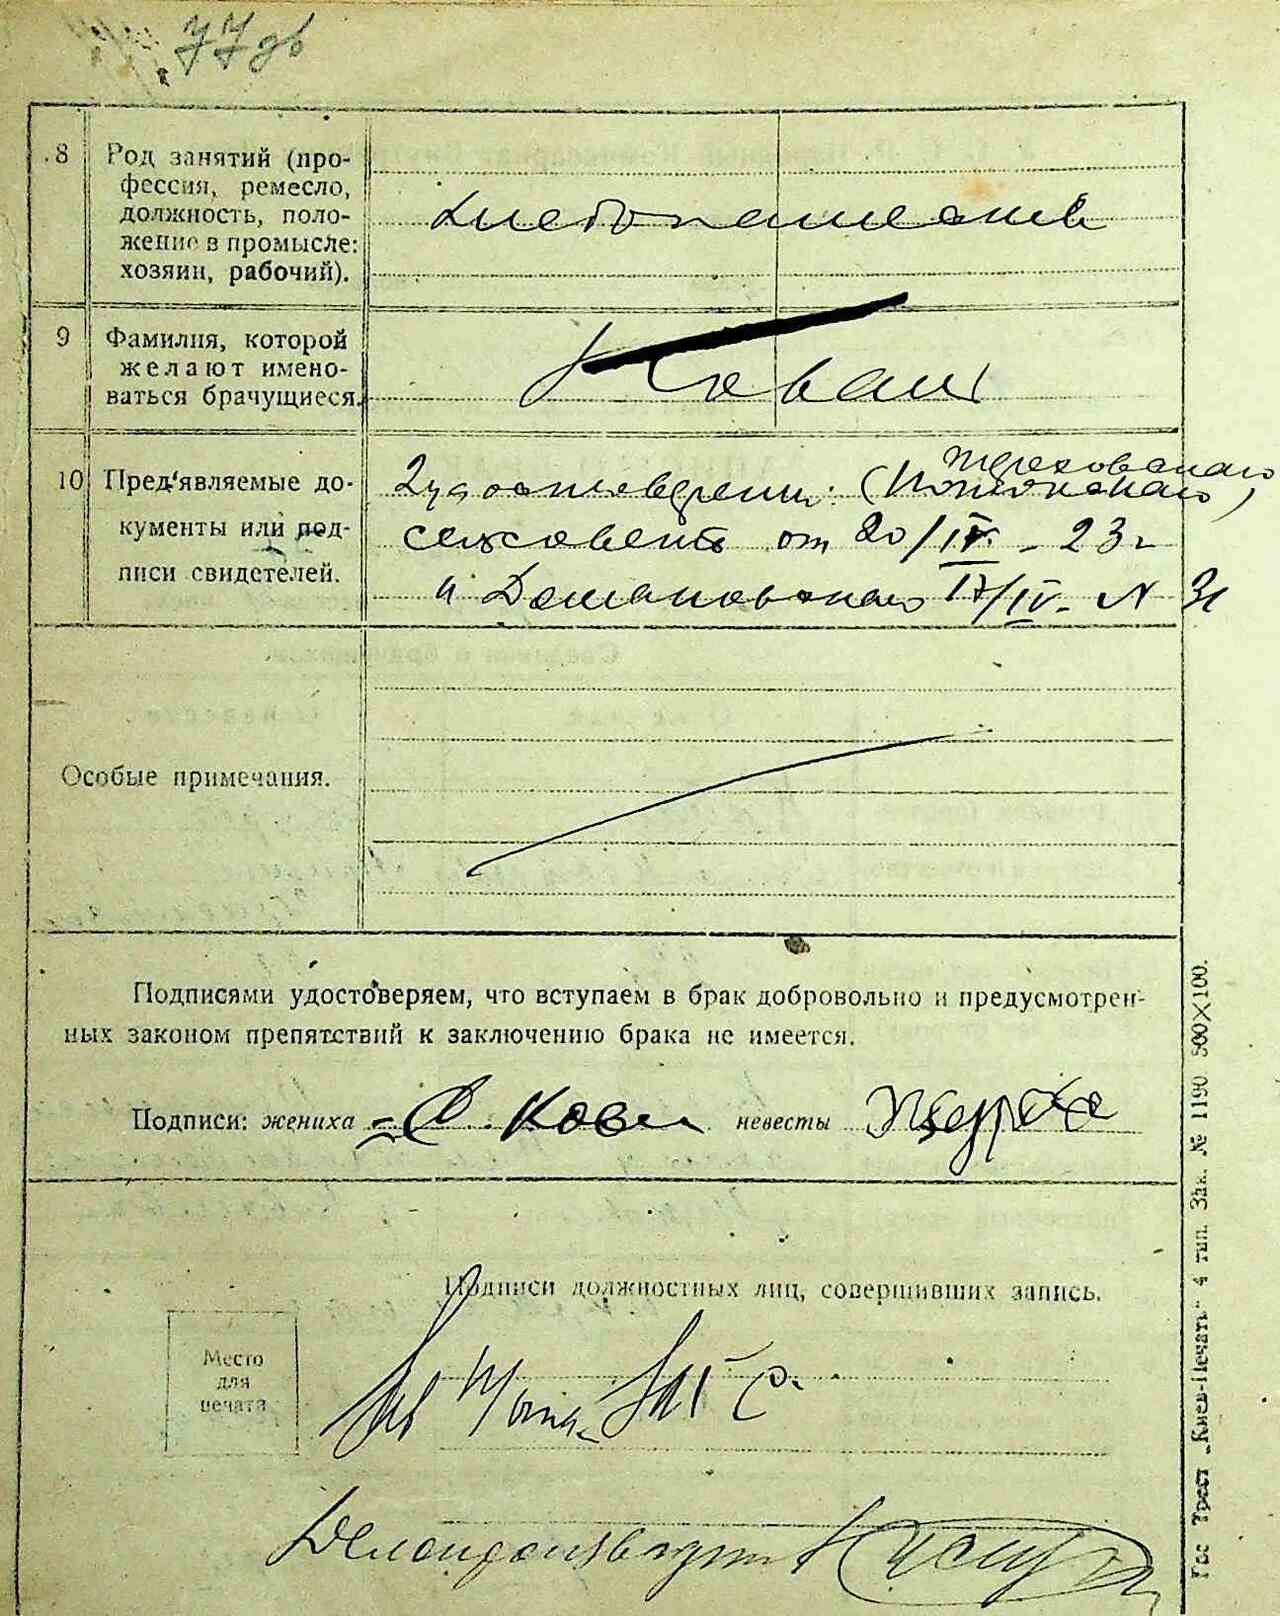 77 об
8 Род занятий (про-
фессия, ремесло,
должность, поло-
жение в промысле:
хозяин, рабочий).
хлебопашество
9 Фамилия, которой
желают имено-
ваться брачущиеся.
Коваль
10 Пред'являемые до-
кументы или под-
писи свидетелей.
2 удостоверения:
сельсовета от 20/IV - 23 г
и 17/IV - N 31
Особые примечания.
Подписями удостоверяем, что вступаем в брак добровольно и предусмотрен-
ных законом препятствий к заключению брака не имеется.
Подписи: жениха невесты
Подписи должностных лиц, совершивших запись.
Место
для
печати
Зав
Делопроизводитель
Гос Трест „Киев-Печать" 4 тип. Зак. № 1190 500×100.